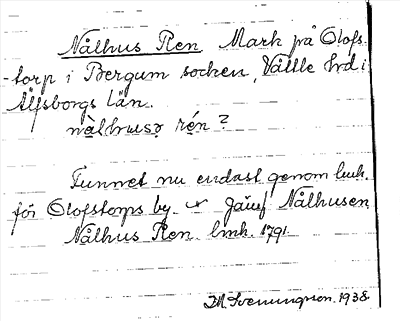 Nålhus Ren Mark på Olofs-
-torp i Bergum socken, Vättle hrd i
Älfsborgs län.
nàlhusə rén?
Funnet nu endast genom lmk.
för Olofstorps by. Jämf Nålhusen
Nålhus Ren. lmk. 1791.
Svenningson. 1938